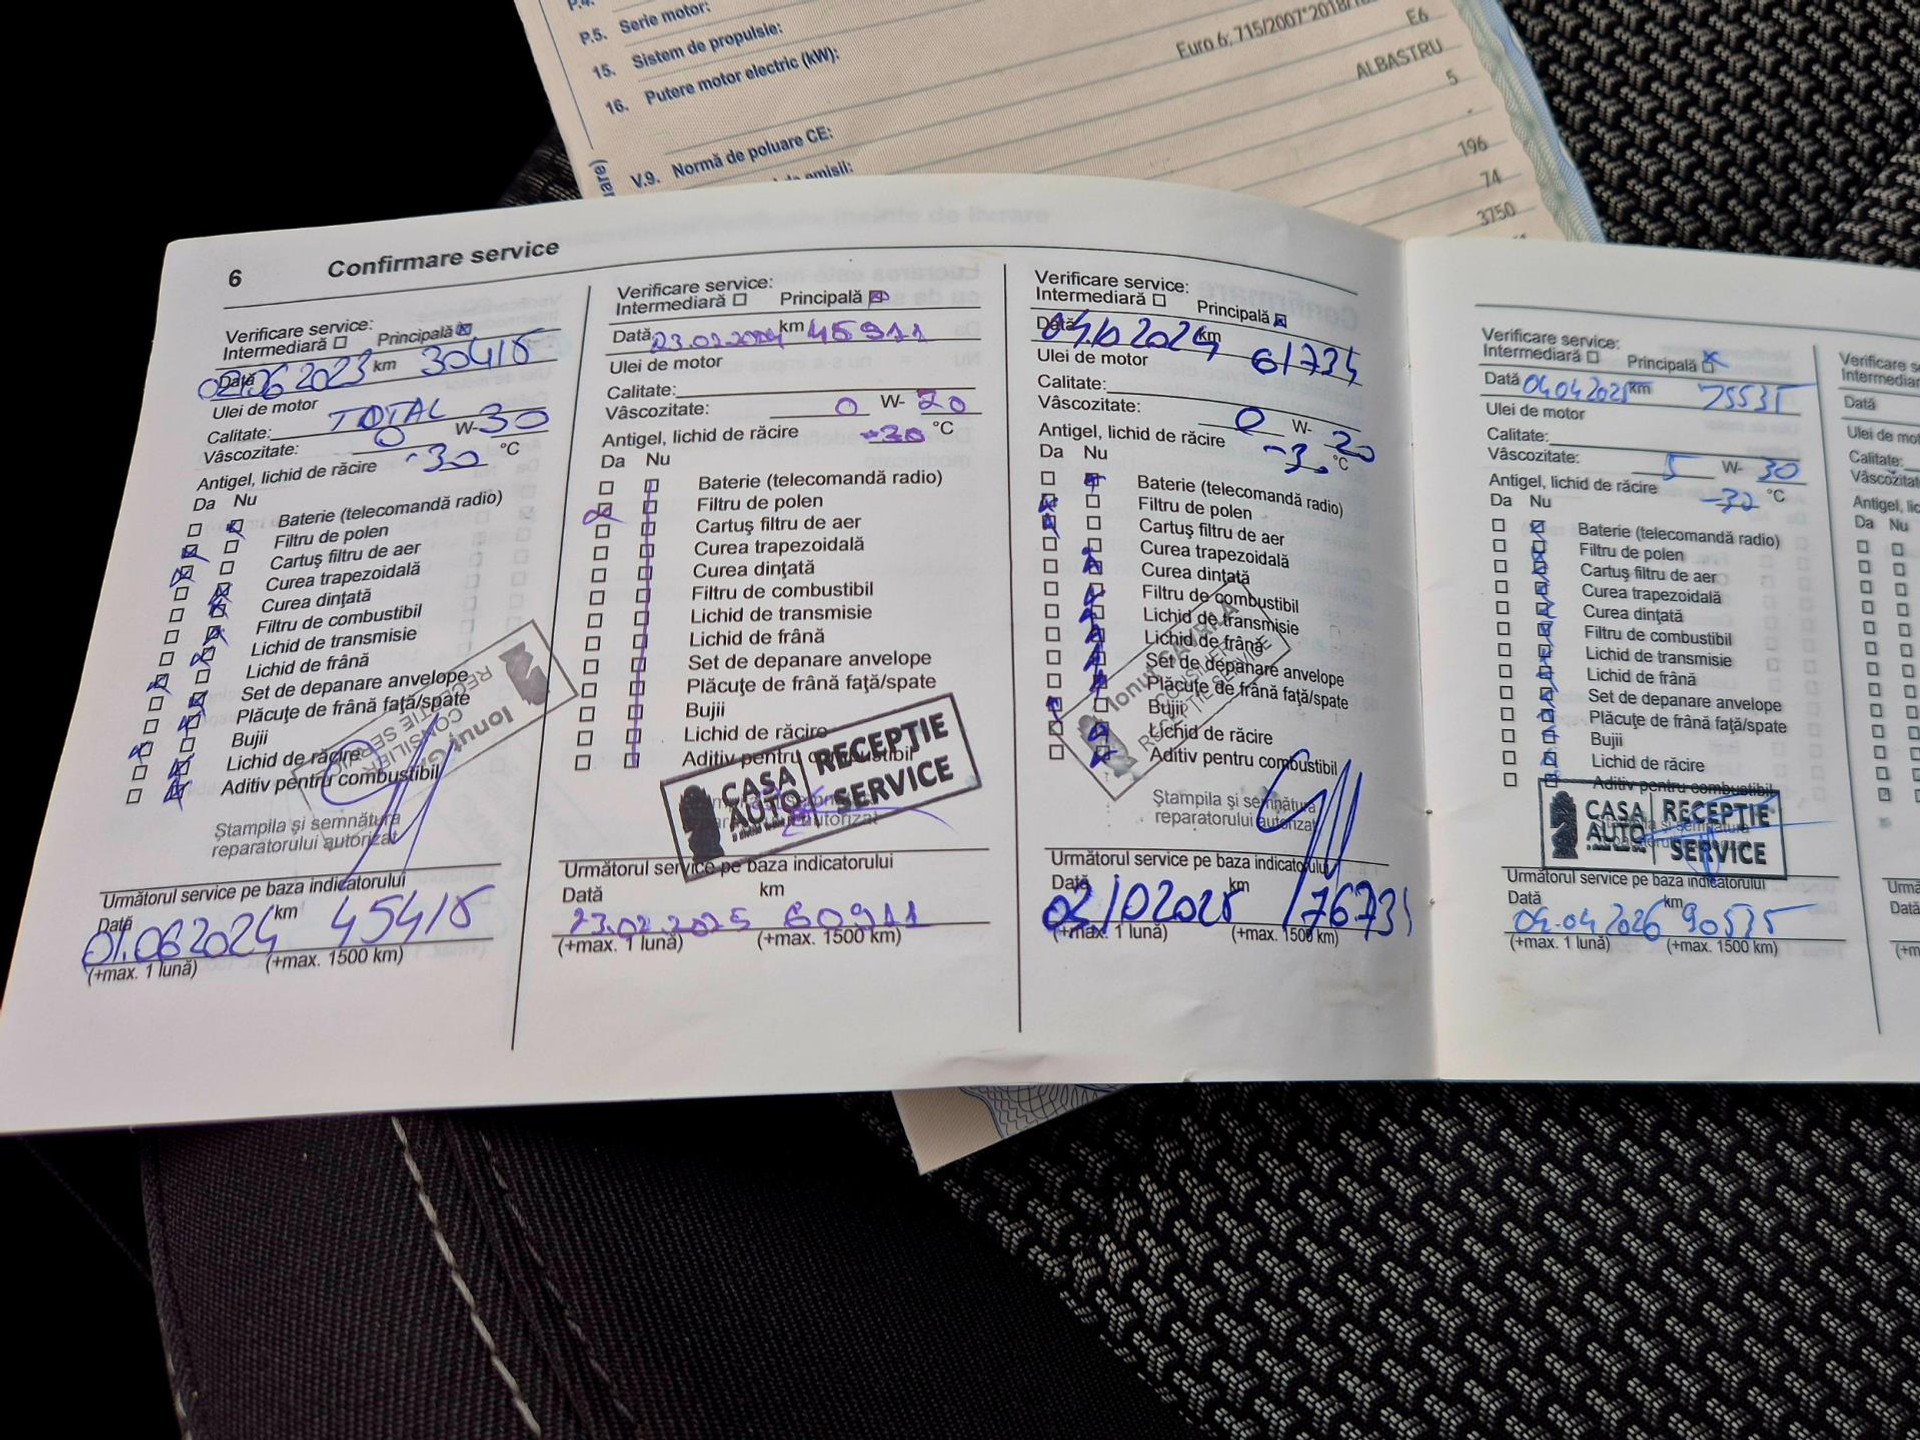 P.5. Serie motor:
15. Sistem de propulsie:
16. Putere motor electric (kW):
V.9. Normă de poluare CE:
Euro 6; 715/2007*2018/
E6
ALBASTRU
5
-
196
74
3750
6 Confirmare service
Verificare service:
Intermediară Principală
Dată 02.06 2023 km 30418
Ulei de motor
Calitate: TOTAL
Vâscozitate: 0 W- 30
Antigel, lichid de răcire -30 °C
Da Nu
Baterie (telecomandă radio)
Filtru de polen
Cartuş filtru de aer
Curea trapezoidală
Curea dinţată
Filtru de combustibil
Lichid de transmisie
Lichid de frână
Set de depanare anvelope
Plăcuţe de frână faţă/spate
Bujii
Lichid de răcire
Aditiv pentru combustibil
Ionuț
CONSILIER
RECEPTIE SERVICE
Ştampila şi semnătura
reparatorului autorizat
Următorul service pe baza indicatorului
Dată km
01.06 2024 45418
(+max. 1 lună) (+max. 1500 km)
Verificare service:
Intermediară Principală
Dată 23.02.2024 km 45911
Ulei de motor
Calitate:
Vâscozitate: 0 W- 20
Antigel, lichid de răcire -30 °C
Da Nu
Baterie (telecomandă radio)
Filtru de polen
Cartuş filtru de aer
Curea trapezoidală
Curea dinţată
Filtru de combustibil
Lichid de transmisie
Lichid de frână
Set de depanare anvelope
Plăcuţe de frână faţă/spate
Bujii
Lichid de răcire
Aditiv pentru combustibil
CASA AUTO RECEPŢIE SERVICE
Următorul service pe baza indicatorului
Dată km
23.02.2025 60911
(+max. 1 lună) (+max. 1500 km)
Verificare service:
Intermediară Principală
Dată 04.10 2024 km 61734
Ulei de motor
Calitate:
Vâscozitate: 0 W- 20
Antigel, lichid de răcire -30 °C
Da Nu
Baterie (telecomandă radio)
Filtru de polen
Cartuş filtru de aer
Curea trapezoidală
Curea dinţată
Filtru de combustibil
Lichid de transmisie
Lichid de frână
Set de depanare anvelope
Plăcuţe de frână faţă/spate
Bujii
Lichid de răcire
Aditiv pentru combustibil
Ionuț
Ştampila şi semnătura
reparatorului autorizat
Următorul service pe baza indicatorului
Dată km
03/10 2025 76734
(+max. 1 lună) (+max. 1500 km)
Verificare service:
Intermediară Principală
Dată 04.04 2025 km 75535
Ulei de motor
Calitate:
Vâscozitate: 5 W- 30
Antigel, lichid de răcire -30 °C
Da Nu
Baterie (telecomandă radio)
Filtru de polen
Cartuş filtru de aer
Curea trapezoidală
Curea dinţată
Filtru de combustibil
Lichid de transmisie
Lichid de frână
Set de depanare anvelope
Plăcuţe de frână faţă/spate
Bujii
Lichid de răcire
Aditiv pentru combustibil
CASA AUTO RECEPŢIE SERVICE
Următorul service pe baza indicatorului
Dată km
04.04 2026 90535
(+max. 1 lună) (+max. 1500 km)
Verificare
Dată
Ulei de
Calitate:
Da Nu
Dată